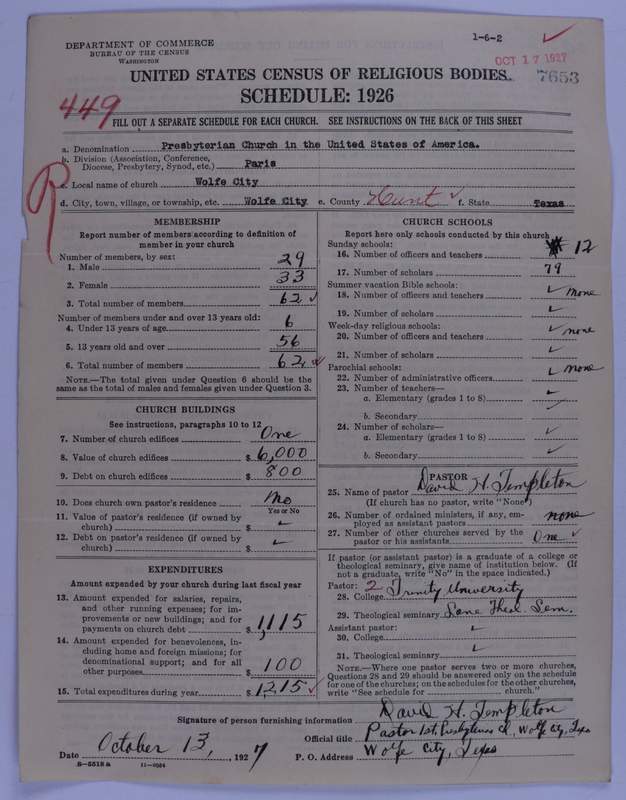 1-6-2
DEPARTMENT OF COMMERCE
BUREAU OF THE CENSUS
WASHINGTON
OCT 17 1927
7653
UNITED STATES CENSUS OF RELIGIOUS BODIES
SCHEDULE: 1926
449
FILL OUT A SEPARATE SCHEDULE FOR EACH CHURCH. SEE INSTRUCTIONS ON THE BACK OF THIS SHEET
a. Denomination Presbyterian Church in the United States of America.
b. Division (Association, Conference,
Diocese, Presbytery, Synod, etc.) Paris
R
c. Local name of church Wolfe City
d. City, town, village, or township, etc. Wolfe City e. County Hunt ✓ f. State Texas
MEMBERSHIP
Report number of members according to definition of
member in your church
Number of members, by sex:
1. Male 29
2. Female 33
3. Total number of members 62 ✓
Number of members under and over 13 years old:
4. Under 13 years of age 6
5. 13 years old and over 56
6. Total number of members 62 ✓
NOTE.—The total given under Question 6 should be the
same as the total of males and females given under Question 3.
CHURCH BUILDINGS
See instructions, paragraphs 10 to 12
7. Number of church edifices One
8. Value of church edifices $ 6,000
9. Debt on church edifices $ 800
10. Does church own pastor's residence No
Yes or No
11. Value of pastor's residence (if owned by
church) $ ✓
12. Debt on pastor's residence (if owned by
church) $ ✓
EXPENDITURES
Amount expended by your church during last fiscal year
13. Amount expended for salaries, repairs,
and other running expenses; for im-
provements or new buildings; and for
payments on church debt $ 1,115
14. Amount expended for benevolences, in-
cluding home and foreign missions; for
denominational support; and for all
other purposes $ 100
15. Total expenditures during year $ 1215 ✓
CHURCH SCHOOLS
Report here only schools conducted by this church
Sunday schools:
16. Number of officers and teachers 12
17. Number of scholars 79
Summer vacation Bible schools:
18. Number of officers and teachers ✓ none
19. Number of scholars ✓
Week-day religious schools:
20. Number of officers and teachers ✓ none
21. Number of scholars ✓
Parochial schools:
22. Number of administrative officers ✓ none
23. Number of teachers—
a. Elementary (grades 1 to 8) ✓
b. Secondary ✓
24. Number of scholars—
a. Elementary (grades 1 to 8) ✓
b. Secondary ✓
PASTOR
25. Name of pastor David H. Templeton
(If church has no pastor, write "None")
26. Number of ordained ministers, if any, em-
ployed as assistant pastors none
27. Number of other churches served by the
pastor or his assistants One ✓
If pastor (or assistant pastor) is a graduate of a college or
theological seminary, give name of institution below. (If
not a graduate, write "No" in the space indicated.)
Pastor: 2
28. College Trinity University
29. Theological seminary Lane Theol. Sem.
Assistant pastor:
30. College ✓
31. Theological seminary ✓
NOTE.—Where one pastor serves two or more churches,
Questions 28 and 29 should be answered only on the schedule
for one of the churches; on the schedules for the other churches,
write "See schedule for church."
Signature of person furnishing information David H. Templeton
Official title Pastor 1st Presbyterian Ch., Wolfe City, Texas
Date October 13, 1927 P. O. Address Wolfe City, Texas
8-5518 a 11-9054